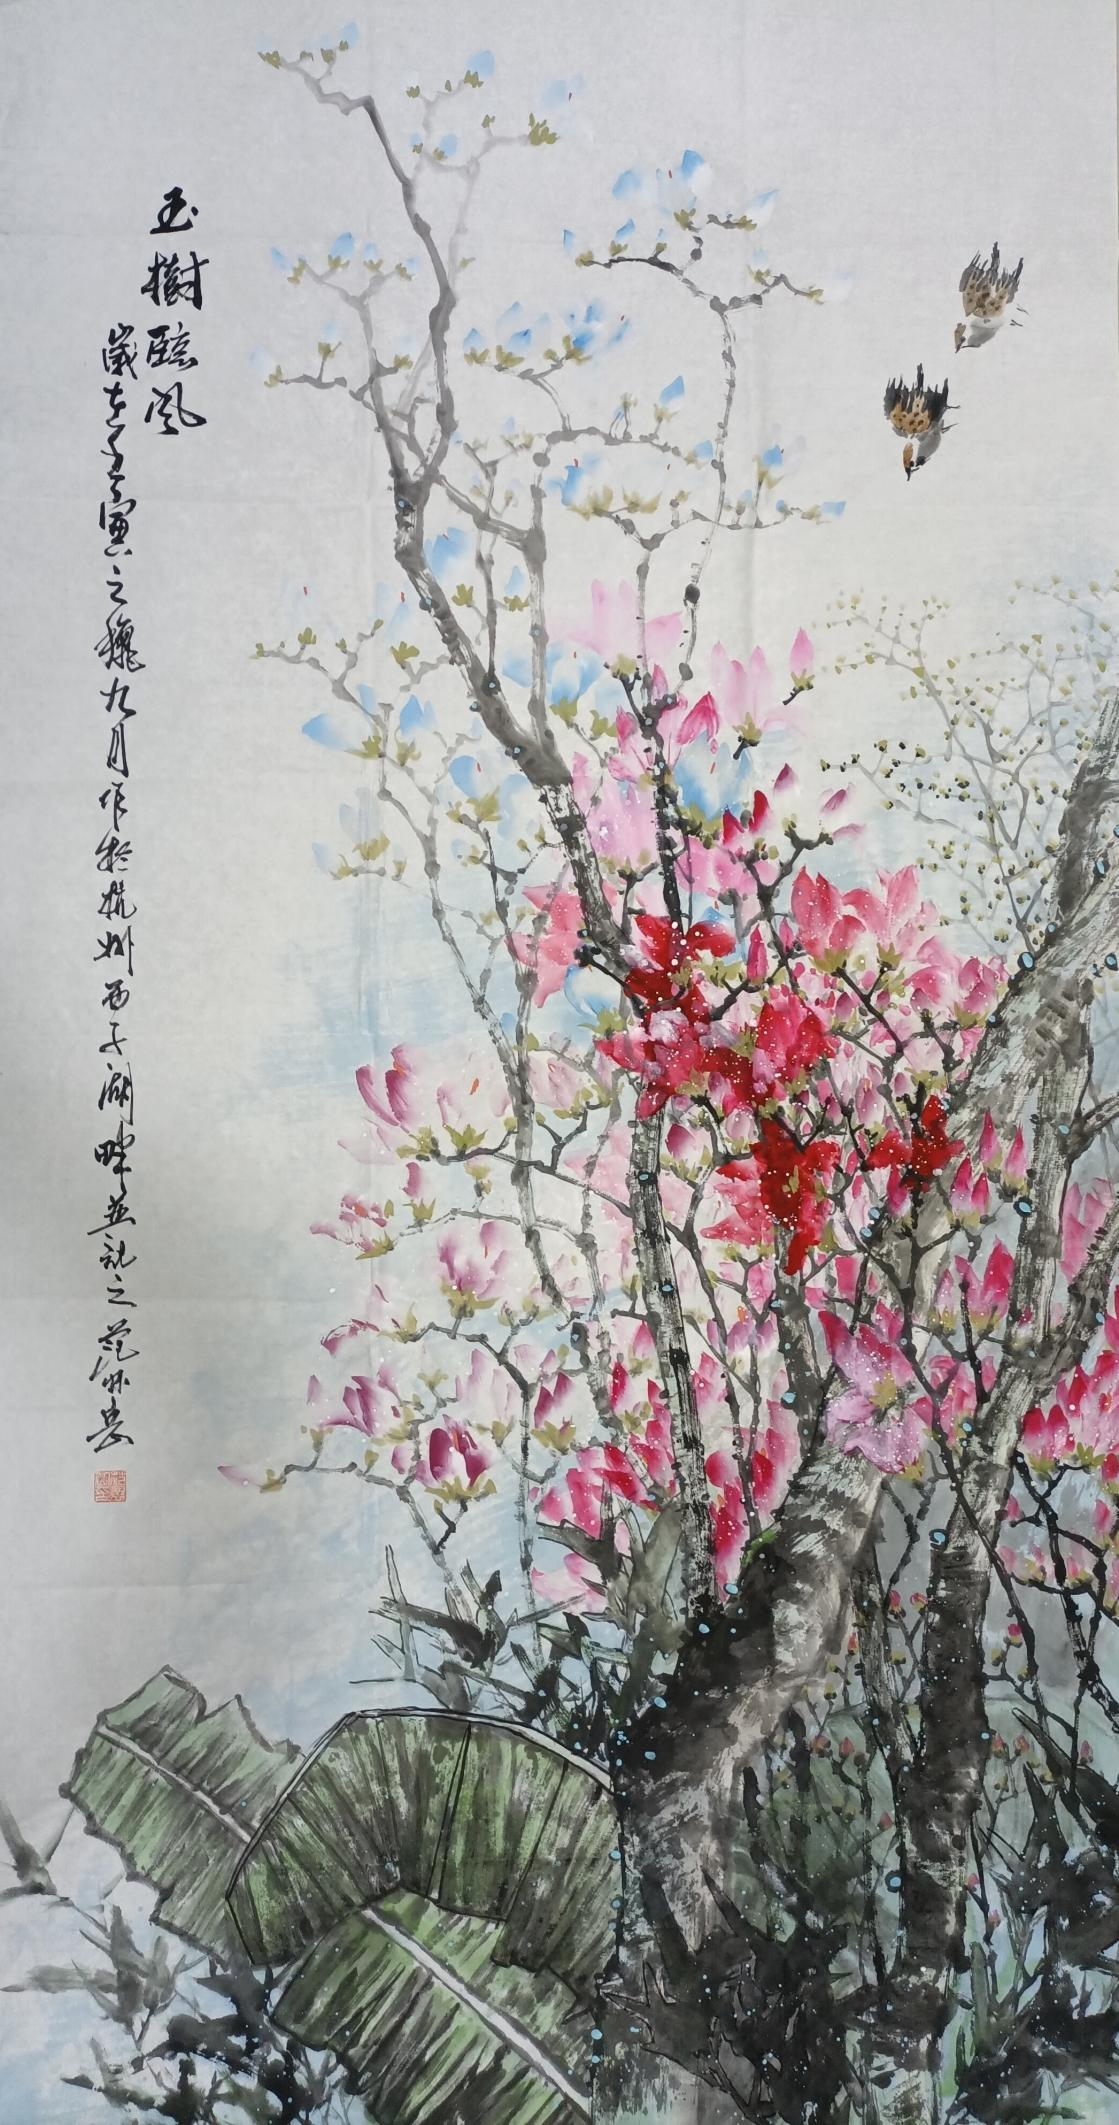 玉樹臨風
歲在壬寅之龝九月作於杭州西子湖畔並記之范林岳